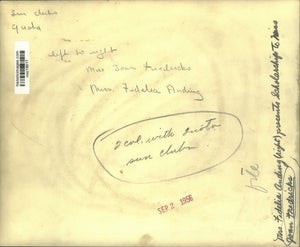 Sun clubs
Quota
left to right
Miss Joan Fredericks
Miss. Fidelia Anding
2 col. with Quota
sun clubs
SEP 2 1956
file
Miss Fidelia Anding (right) presents scholarship to Miss
Joan Fredericks